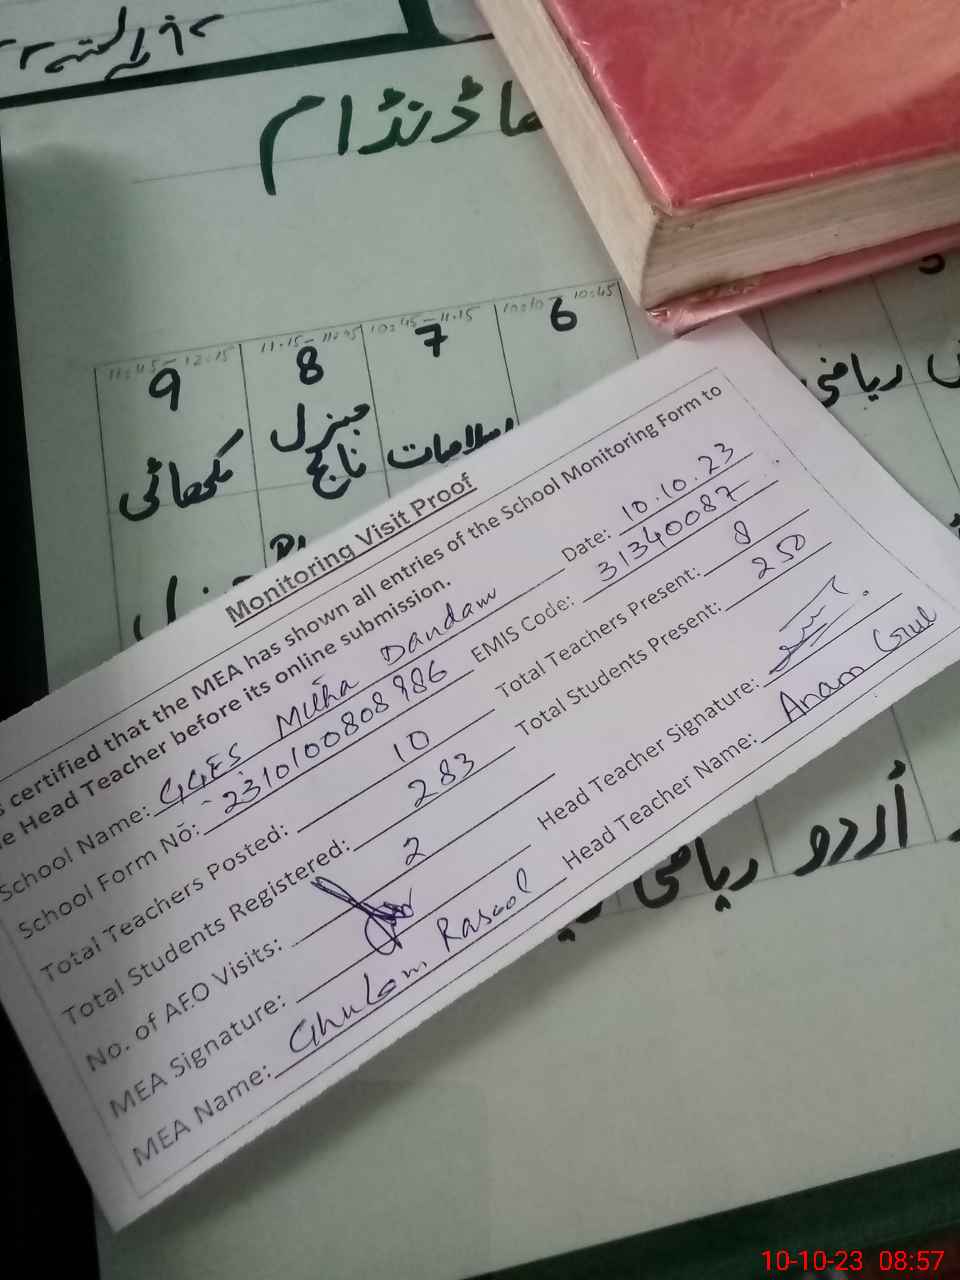 ڈنڈام
11:45-12:15 11.15-11:45 10:45-11.15 10:10-10:45
9 8 7 6
لکھائی جنرل نالج اسلامیات
ریاضی
Monitoring Visit Proof
certified that the MEA has shown all entries of the School Monitoring Form to
Head Teacher before its online submission.
School Name: GGES Mitha Dandam Date: 10.10.23
School Form No: 2310100808986 EMIS Code: 31340087
Total Teachers Posted: 10 Total Teachers Present: 8
Total Students Registered: 283 Total Students Present: 250
No. of AEO Visits: 2
MEA Signature: Head Teacher Signature:
MEA Name: Ghulam Rasool Head Teacher Name: Anam Gul
اُردو ریاضی
10-10-23 08:57